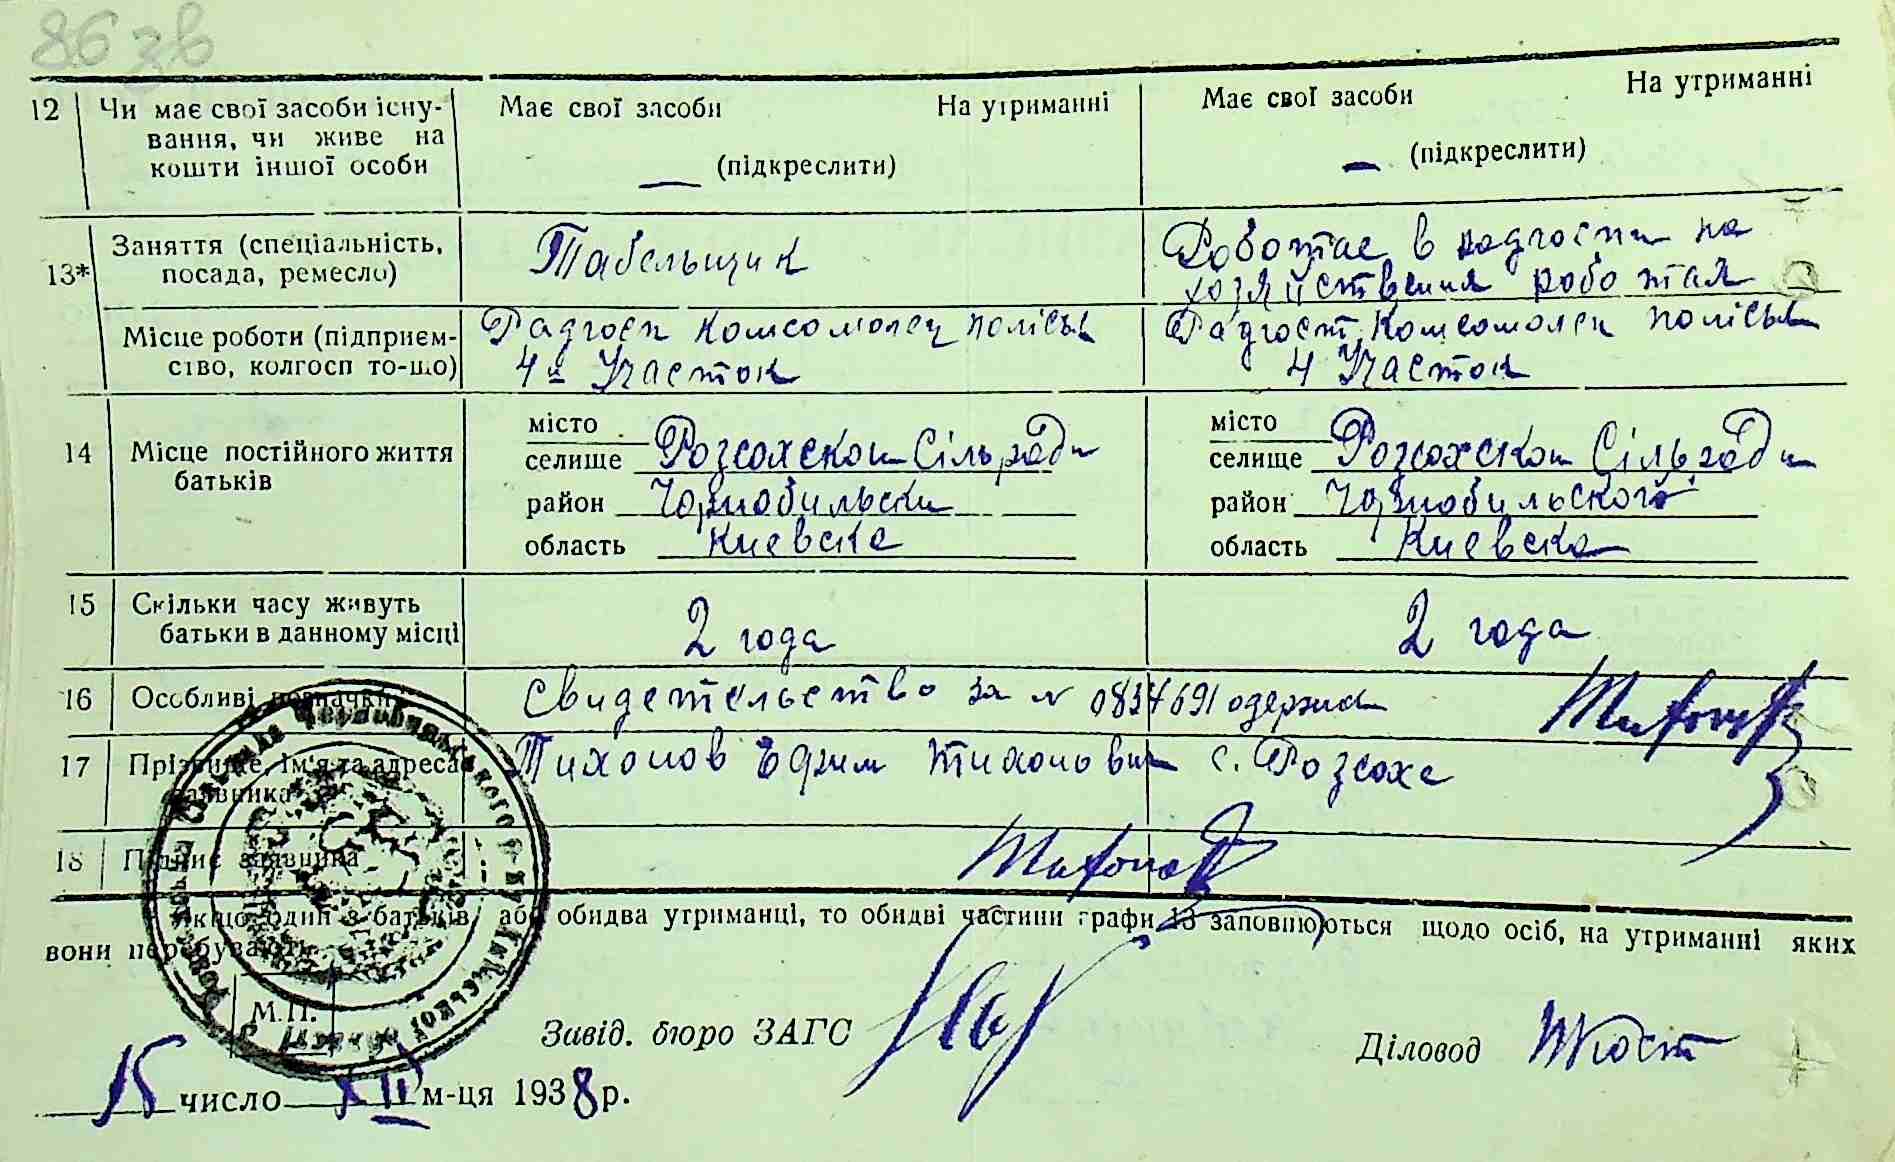 86 зв
12 Чи має свої засоби існу-
вання, чи живе на
кошти іншої особи
Має свої засоби На утриманні
(підкреслити)
Має свої засоби На утриманні
(підкреслити)
13* Заняття (спеціальність,
посада, ремесло)
Табельщик
Роботає в радгоспи на
хозяйствения роботая
Місце роботи (підприєм-
ство, колгосп то-що)
Радгосп Комсомолец поліськ
4й Участок
Радгосп Комсомолец поліськ
4 Участок
14 Місце постійного життя
батьків
місто
селище Розсохскои Сільради
район Чорнобильски
область Киевске
місто
селище Розсохскои Сільради
район Чорнобильского
область Киевска
15 Скільки часу живуть
батьки в данному місці
2 года
2 года
16 Особливі позначки
Свидетельство за № 0837691 одержал
Тихонов
17 Прізвище, ім'я та адреса
заявника
Тихонов Ефим Тихонович с. Розсохе
18 Підпис заявника
Тихонов
Якщо один з батьків, або обидва утриманці, то обидві частини графи 13 заповнюються щодо осіб, на утриманні яких
вони перебувають.
М.П.
Завід. бюро ЗАГС
Діловод
15 число XII м-ця 1938 р.